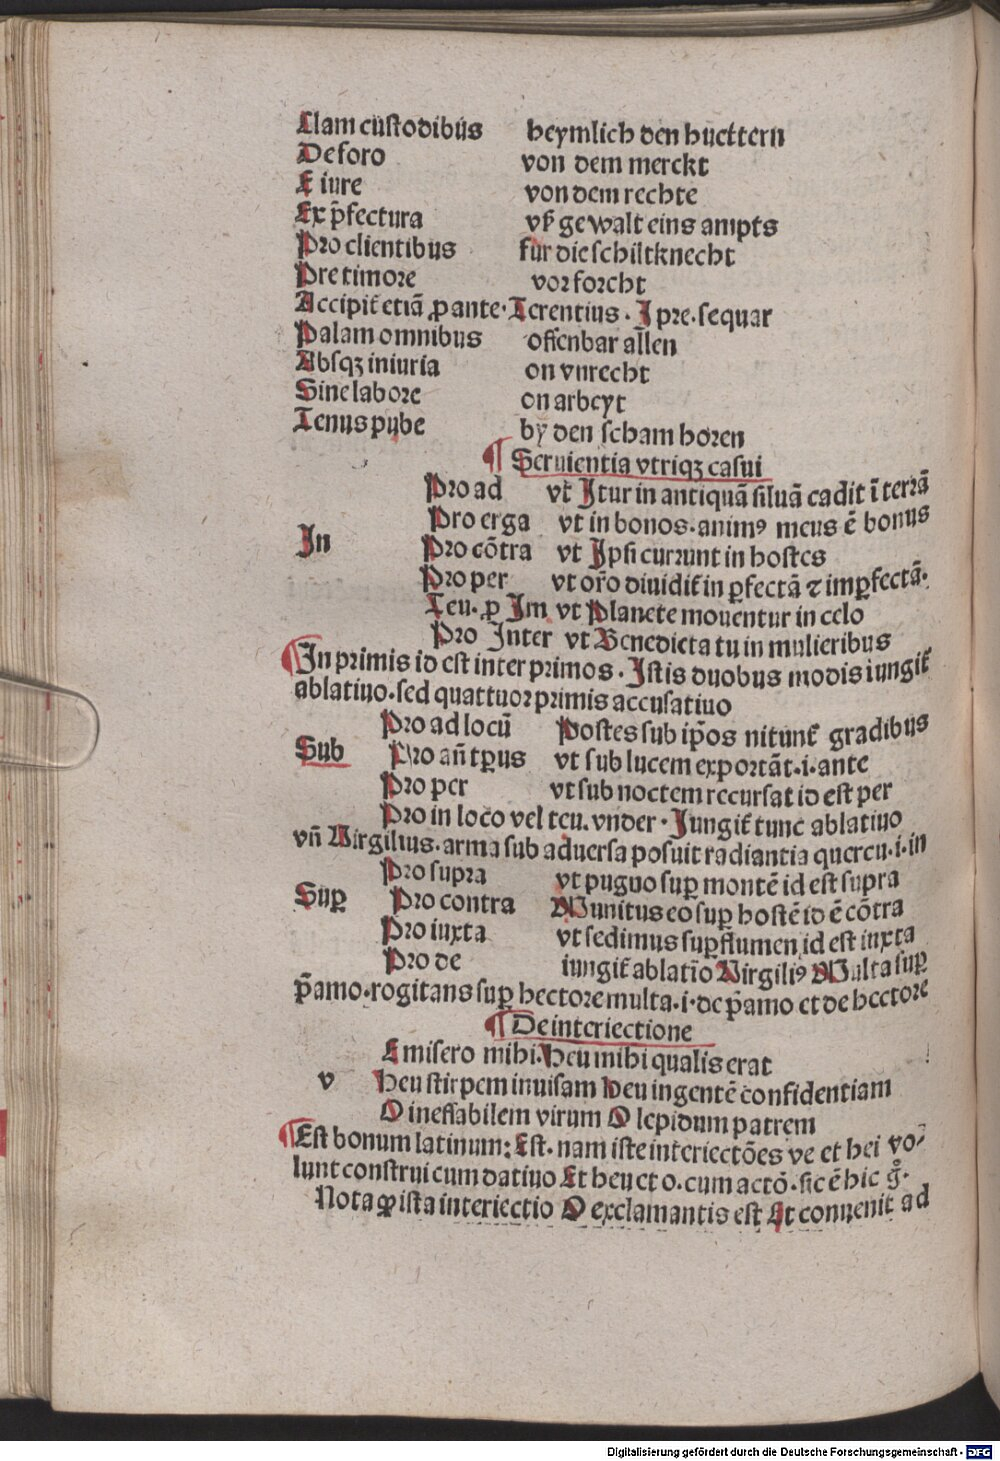 Clam custodibus heymlich den huettern
De foro von dem merckt
E iure von dem rechte
Ex p̄fectura vß gewalt eins ampts
Pro clientibus für die schiltknecht
Pre timore vor forcht
Accipit̄ etiā ꝓ ante. Terentius. I pre. sequar
Palam omnibus offenbar allen
Absqꝫ iniuria on vnrecht
Sine labore on arbeyt
Tenus pube by den scham horen
¶ Seruientia vtriqꝫ casui
Pro ad vt Itur in antiquā siluā cadit ī terrā
Pro erga vt in bonos. animꝰ meus ē bonus
In Pro cōtra vt Ipsi currunt in hostes
Pro per vt or̄o diuidit̄ in ꝑfectā ⁊ imꝑfectā.
Teu. ꝑ Im vt Planete mouentur in celo
Pro Inter vt Benedicta tu in mulieribus
¶ In primis id est inter primos. Istis duobus modis iungit̄
ablatiuo. sed quattuor primis accusatiuo
Pro ad locū Postes sub ip̄os nitunt̄ gradibus
Sub Pro an̄ tp̄us vt sub lucem exportāt. i. ante
Pro per vt sub noctem recursat id est per
Pro in loco vel teu. vnder. Iungit̄ tunc ablatiuo
vn̄ Virgilius. arma sub aduersa posuit radiantia quercu. i. in
Pro supra vt pugno suꝑ montē id est supra
Suꝑ Pro contra Munitus eo suꝑ hostē id ē cōtra
Pro iuxta vt sedimus suꝑ flumen id est iuxta
Pro de iungit̄ ablatīo Virgiliꝰ Multa suꝑ
p̄amo. rogitans suꝑ hectore multa. i. de p̄amo et de hectore
¶ De interiectione
E misero mihi. Heu mihi qualis erat
v Heu stirpem inuisam Heu ingentē confidentiam
O ineffabilem virum O lepidum patrem
¶ Est bonum latinum: Est. nam iste interiectōes ve et hei vo⸗
lunt construi cum datiuo Et heu et o. cum actō. sic ē hic g̊.
Nota ꝙ ista interiectio O exclamantis est Et conuenit ad
Digitalisierung gefördert durch die Deutsche Forschungsgemeinschaft - DFG